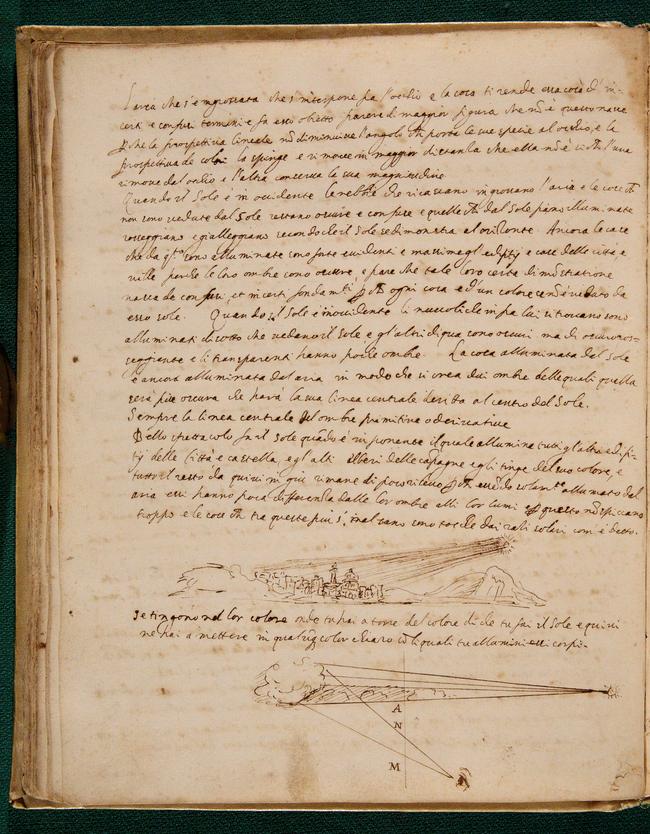 L'aria che s'è ingrossata che s'interpone fra l'occhio e la cosa ti rende essa cosa d'in-
certi e confusi termini e fa esso obietto parere di maggior figura che nõ è questo nasce
che la prospettiva lineale nõ diminuisce l'angolo porta le sue spetie al occhio, e la
prospettiva de colori la spinge e rimove in maggior distanza che ella nõ è si l'una
rimove dal ochio e l'altra conserva la sua magnitudine
Quando il Sole è in occidente le nebbie che ricascano ingrossano l'aria e le cose
non sono vedute dal Sole restano oscure e confuse e quelle dal Sole fiano alluminate
rosseggiano e gialleggiano secondo che il Sole se dimonstra al orizonte. Ancora le case
che da sono alluminate sono forte evidenti e massime gl'edifitij e case delle città e
ville perche le loro ombre sono oscure, e pare che tale loro certa dimostratione
nasca de confusi, et incerti fondamẽti ogni cosa e d'un colore se nõ è veduta da
esso sole. Quando il Sole è in occidente li nuvoli che infra lui si trovano sono
alluminati di sotto che vedano il Sole e gl'altri di qua sono oscuri ma di oscuro ros-
seggiante e li transparenti hanno poche ombre. La cosa alluminata dal Sole
è ancora alluminata dal aria in modo che si crea dui ombre delle quali quella
sera più oscura che havrà la sua linea centrale deritta al centro del Sole.
Sempre la linea centrale del ombre primitive o derivative
Bello spettacolo fa il sole quãdo è in ponente il quale allumina tutti gl'altri edifi-
tij delle Città e castella, e gl'alti alberi delle cãpagne e gli tinge del suo colore, e
tutto il resto da quivi in giù rimane di poco rilievo essẽdo solam.te alluminato dal
aria essi hanno poca differenza dalle lor ombre alli lor lumi e questo nõ spiccano
troppo e le cose tra queste più s'inalzano sono tocche dai razi solari com'è detto.
se tingono nel lor colore onde tu hai a torre del colore di che tu fai il sole e quivi
ne hai a mettere in qualũq color chiaro cõ il quali tu allumini essi corpi.
A
N
M